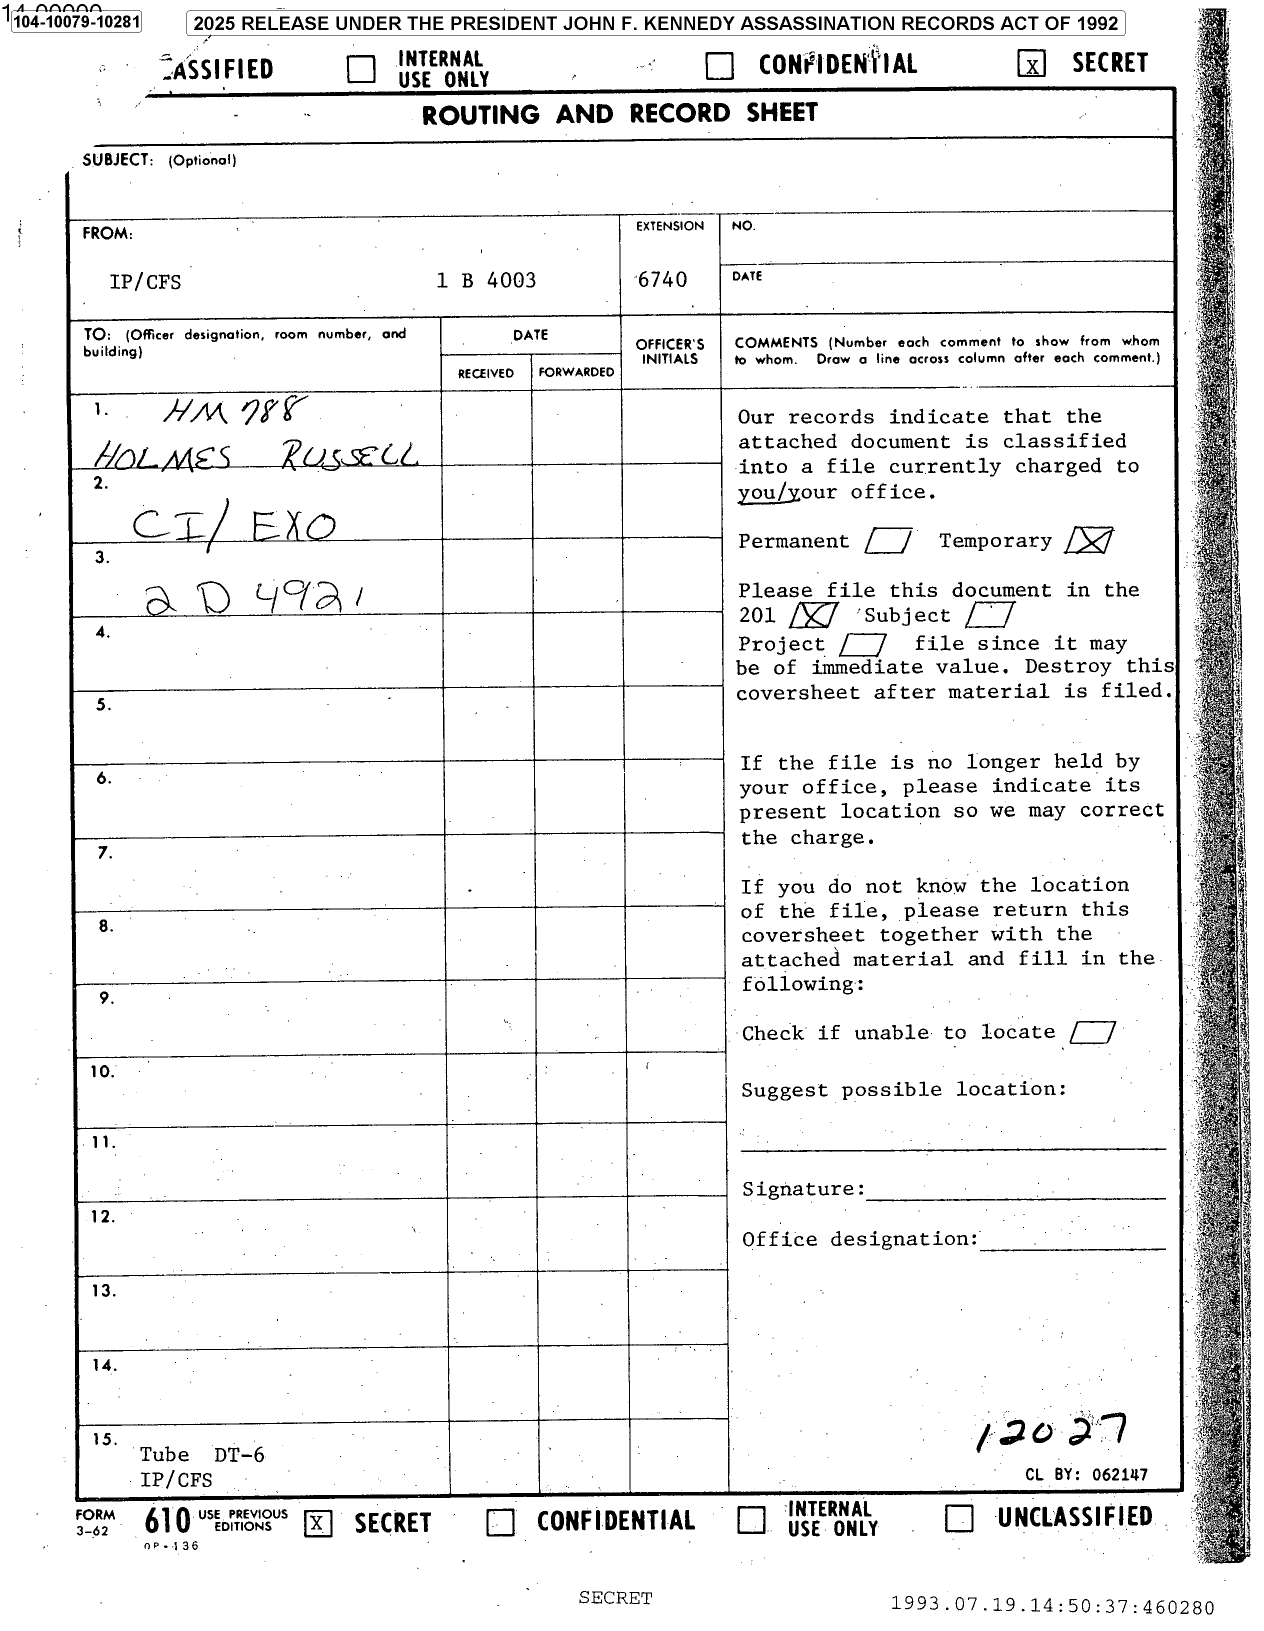 104-10079-10281
2025 RELEASE UNDER THE PRESIDENT JOHN F. KENNEDY ASSASSINATION RECORDS ACT OF 1992
ASSIFIED INTERNAL USE ONLY CONFIDENTIAL X SECRET
ROUTING AND RECORD SHEET
SUBJECT: (Optional)
FROM: EXTENSION NO.
IP/CFS 1 B 4003 6740 DATE
TO: (Officer designation, room number, and building) DATE OFFICER'S INITIALS COMMENTS (Number each comment to show from whom to whom. Draw a line across column after each comment.)
RECEIVED FORWARDED
1. HM 788
HOLMES RUSSELL
2. CI/EXO
3. 2 D 4921
4.
5.
6.
7.
8.
9.
10.
11.
12.
13.
14.
15. Tube DT-6
IP/CFS
Our records indicate that the
attached document is classified
into a file currently charged to
you/your office.
Permanent Temporary X
Please file this document in the
201 X Subject
Project file since it may
be of immediate value. Destroy this
coversheet after material is filed.
If the file is no longer held by
your office, please indicate its
present location so we may correct
the charge.
If you do not know the location
of the file, please return this
coversheet together with the
attached material and fill in the
following:
Check if unable to locate
Suggest possible location:
Signature:
Office designation:
12027
CL BY: 062147
FORM 3-62 610 USE PREVIOUS EDITIONS X SECRET CONFIDENTIAL INTERNAL USE ONLY UNCLASSIFIED
OP-136
SECRET
1993.07.19.14:50:37:460280